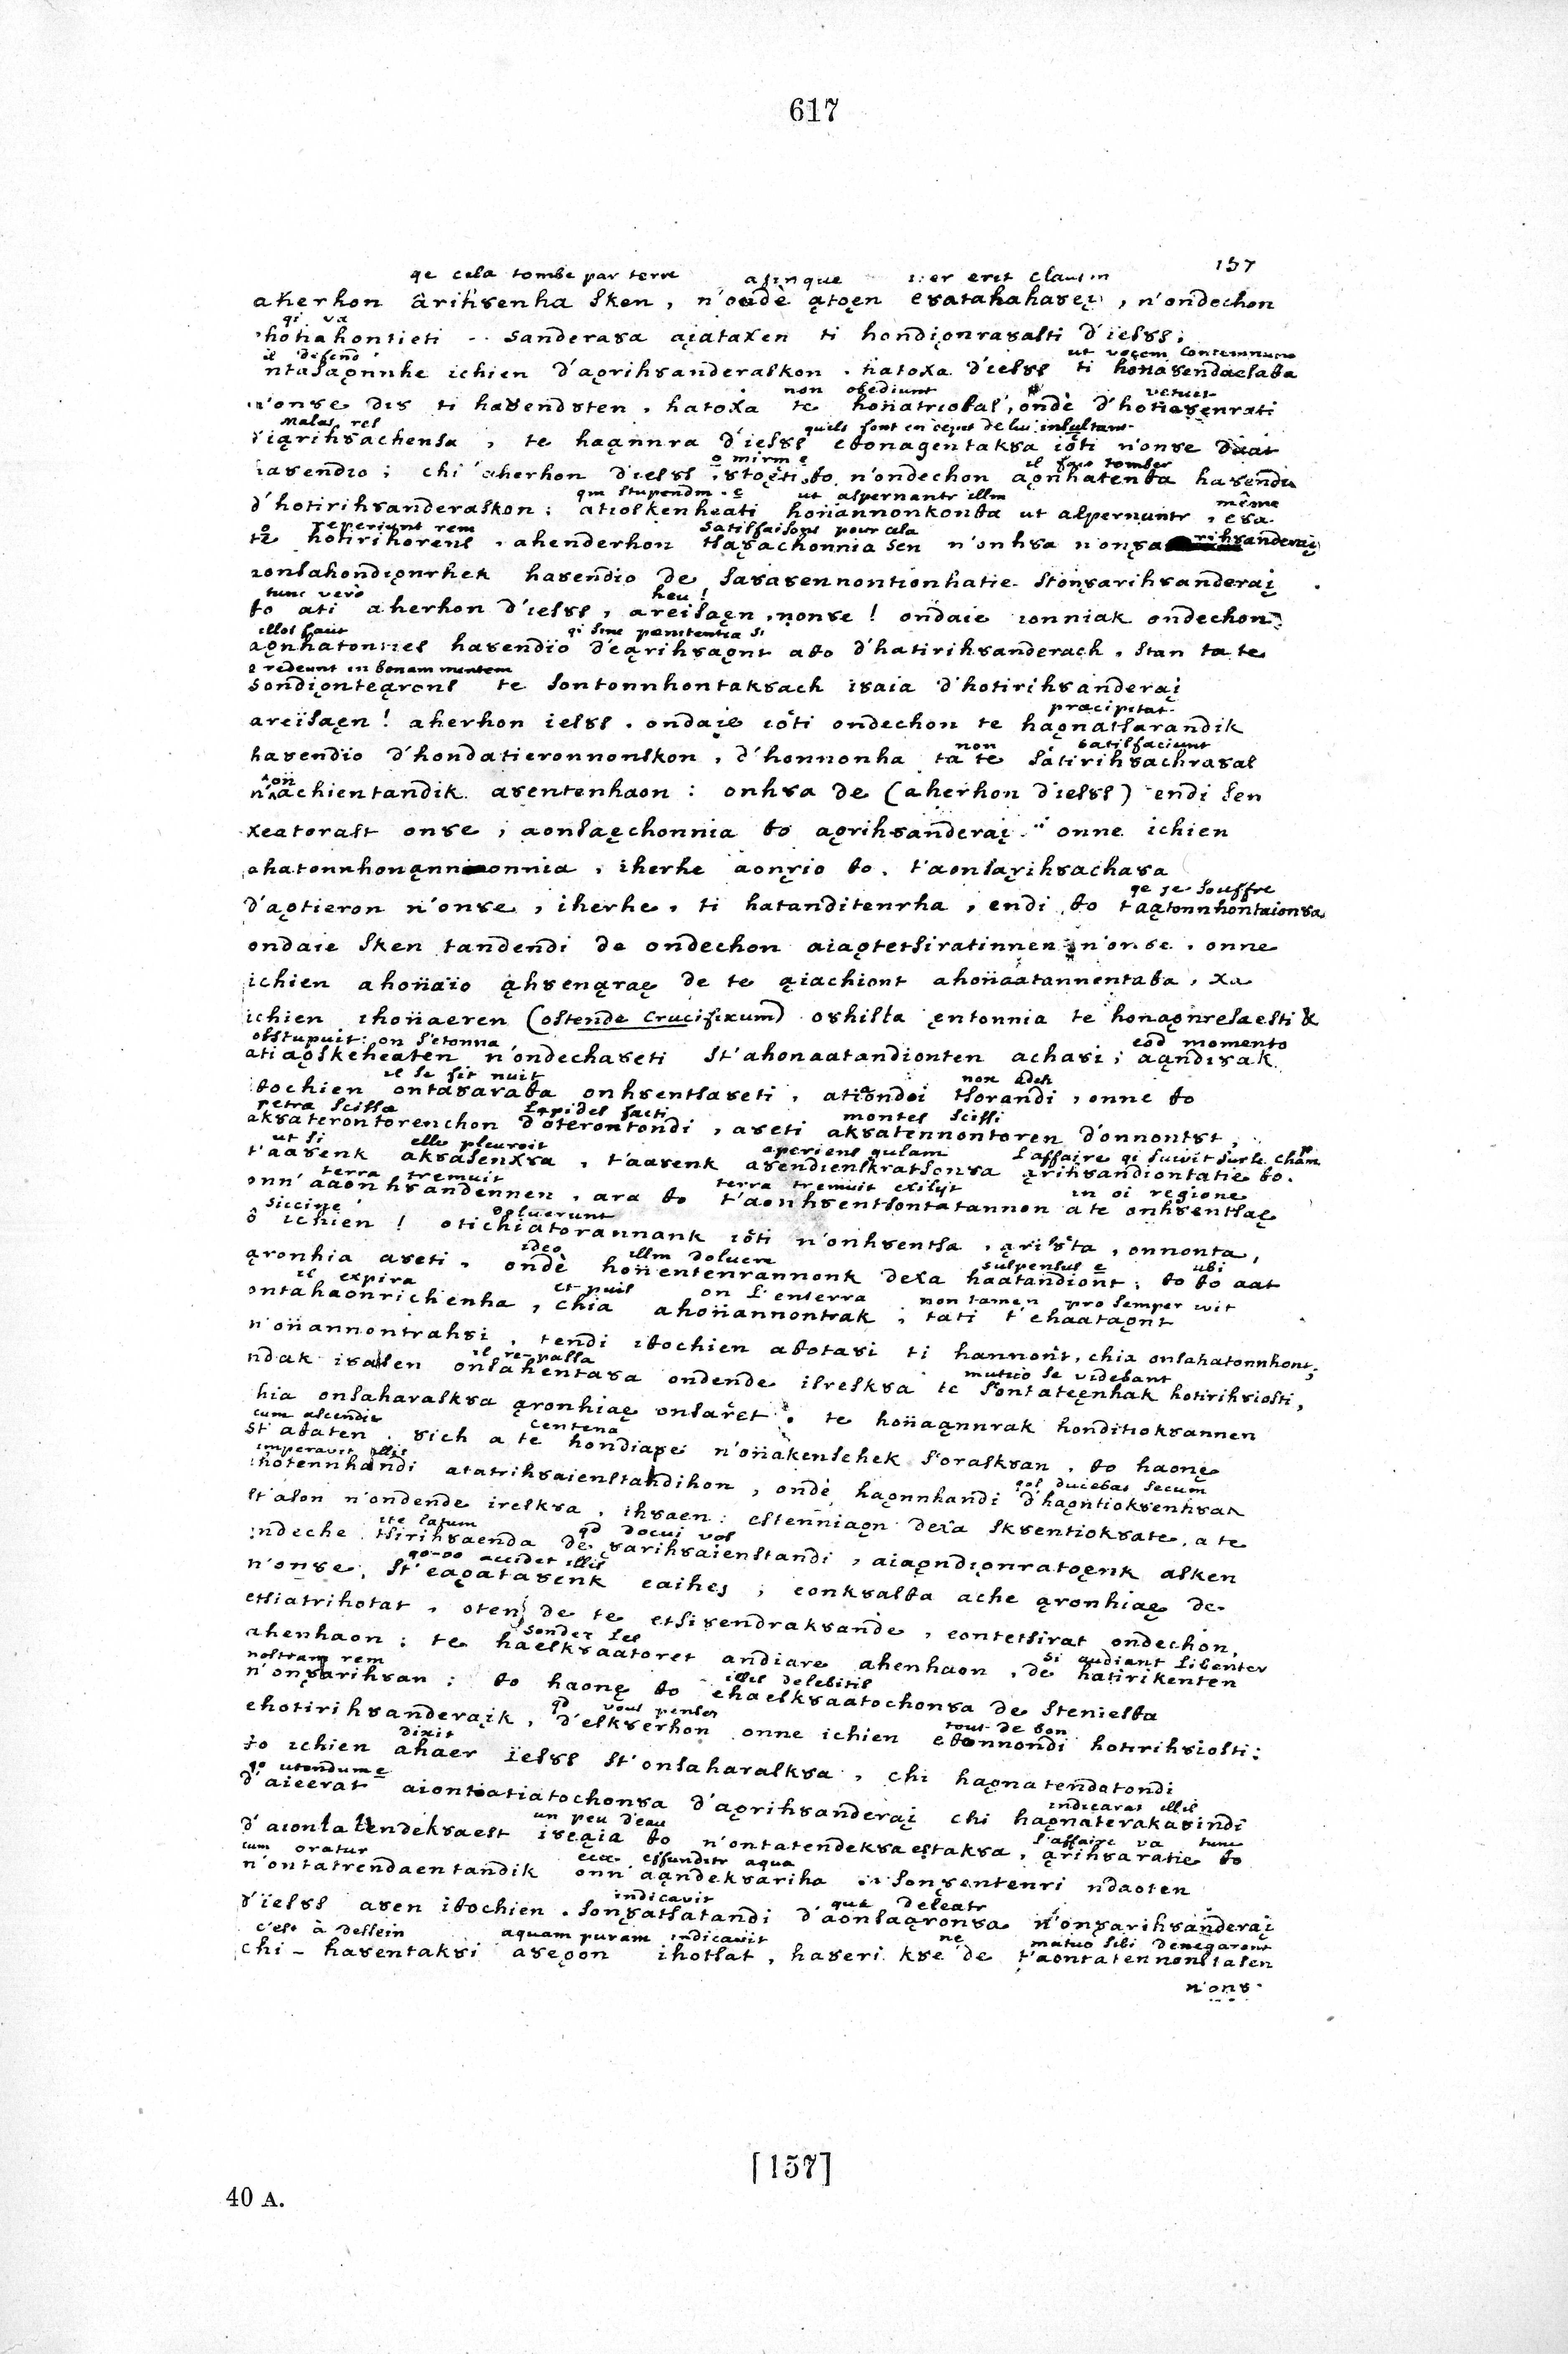 617
157
qe cela tombe par terre afinque
aherhon ârihȣenha sken, n'ondè ątoęn eȣatahahaȣeį, n'ondechon
qi va
hotiahontieti sanderaȣa aįataxen ti hondįonraȣasti d'iesȣs;
il defend ut vocem contemnunt
ichien d'aǫrihȣanderaskon. hatoxa d'iesȣs ti honaȣendaesaɵa
non obediunt
n'onȣe diȣ ti haȣendȣten, hatoxa te honatrioɵas, ondè d'hotieȣenrati
malas res
te haąnnra d'iesȣs iôti n'onȣe
o mirm ę il fait tomber
chi aherhon d'iesȣs, ɵo n'ondechon aǫnhatenɵa haȣendio
qm stupendm. ē ut aspernantr illm même
d'hotirihȣanderaskon; atioskenheati honannonkonɵa ut aspernuntr, eȣa
reperiunt rem satisfaisons pour cela
te hotirihorens. ahenderhon tsaȣachonnia sen n'onhȣa rihȣanderaį
haȣendio de saȣaȣennontionhatie stonȣarihȣanderaį
tunc verò heu!
ɵo ati aherhon d'iesȣs, areisaęn, nonȣe! ondaie ionniak ondechon
illos haut qi sine penitentia st
haȣendio d'eąrihȣaǫnt aɵo d'hatirihȣanderach, stan ta te
redeunt in bonam mentem
sondįonteąrons te sontonnhontakȣach iȣaia d'hotirihȣanderaį
præcipitat
areïsaęn! aherhon iesȣs. ondaie iôti ondechon te haǫnatsarandik
non satisfaciunt
haȣendio d'hondatieronnonskon, d'honnonha ta te sátirihȣachraȣas
n'achientandik. aȣentenhaon: onhȣa de (aherhon d'iesȣs) endi sen
xeatorast onȣe, aonsaęchonnia ɵo aǫrihȣanderaį. onne ichien
iherhe aonȣio ɵo. t'aonsaȣrihȣachaȣa
qe je souffre
d'aǫtieron n'onȣe, iherhe, ti hatanditenrha, endi ɵo taątonnhontaionȣa
ondaie sken tandendi de ondechon aiaǫtetsiratinnen n'onȣe. onne
ichien ahonaïo ąhȣenąraę de te ąiachiont ahonaatannentaɵa, xa
ichien ihonaeren (ostende Crucifixum) oȣhista ęntonnia te honaǫnresaesti &
obstupuit: on s'etonna eôd momento
atiaǫskeheaten n'ondechaȣeti st'ahonaatandionten achaȣi; aąndiȣak
il se fit nuit
iɵochien ontaȣaraɵa onhȣentsaȣeti, ationdoi tsorandi, onne ɵo
petra scissa Lapides facti montes scissi
akȣaterontorenchon d'oterontondi, aȣeti akȣatennontoren d'onnontȣt,
ut si elle pleuroit aperiens gulam l'affaire qi suivit sur le champ
t'aaȣenk akȣasenxȣa, t'aaȣenk aȣendienskratsonȣa ąrihȣandiontatie ɵo.
terra tremuit terra tremuit exilijt in oi regione
onn' aaonhȣandennen, ara ɵo t'aonhȣentsontatannon a te onhȣentsaę
siccine doluerunt
o ichien! otichiatorannank iôti n'onhȣentsa, ąriȣta, onnonta,
ideo illm doluere suspensus ē ubi
ąronhia aȣeti. ondè honentenrannonk dexa haatandiont: ɵo ɵo aat
il expira et puis on l'enterra non tamen pro semper
ontahaonrichenha, chia ahonannontrak; tati t'ehaataǫnt
n'onannontrahȣi, tendi iɵochien aɵotaȣi ti hannont, chia onsahatonnhont;
il re-passa mutuo se videbant
ndak iȣasen onsahentaȣa ondende isreskȣa te sontateęnhak hotirihȣiosti,
hia onsaharaskȣa ąronhiaę onsaret te honaąnnrak honditiokȣannen
cum ascendit centena
st'aɵaten. ȣich a te hondiaȣe n'onakensehek s'oraskȣan, ɵo haonę
imperavit illis qos ducebat secum
ihotennhandi atatrihȣaienstandihon, ondè haǫnnhandi d'haǫntiokȣenhȣat
st'ason n'ondende ireskȣa, ihȣaen: estenniaǫn dexa skȣentiokȣate, a te
ite latum qd docui vos
ndeche tsirihȣaenda de ȣarihȣaienstandi, aiaǫndįonratoęnk asken
accidet illis
n'onȣe, st'eaǫataȣenk eaihej; eonkȣasɵa ache ąronhiaę de
etsiatrihotat, oten de te etsiȣendrakȣande, eontetsirat ondechon,
sonder les si audiant libenter
ahenhaon; te haeskȣaatoret andiare ahenhaon, de hatirikenten
nostram rem illis delebitis
n'onȣarihȣan; ɵo haonę ɵo ehaeskȣaatochonȣa de steniesɵa
qd vous pensez tout de bon
ehotirihȣanderaįk, d'eskȣerhon onne ichien eɵonnondi hotirihȣiosti:
dixit
ɵo ichien ahaer iesȣs st'onsaharaskȣa, chi haǫnatendotondi
qo utendum ē indicarat illis
d'aieerat aiontiatiatochonȣa d'aǫrihȣanderaį chi haǫnaterakaȣindi
un peu d'eau l'affaire va tunc
iȣeąia ɵo n'ontatendekȣaestakȣa, ąrihȣaratie ɵo
cum oratur ecce effunditr aqua
n'ontatrendaentandik onn'aąndekȣariha sonȣentenri ndaoten
indicavit qua deleatr
d'iesȣs aȣen iɵochien. sonȣatsatandi d'aonsaąronȣa n'onȣarihȣanderaį
c'est à dessein aquam puram indicavit ne mutuo sibi denegarent
chi haȣentakȣi aȣeǫon ihotsat, haȣeri kȣe de t'aontatennonstasen
n'onȣ
[157]
40 A.